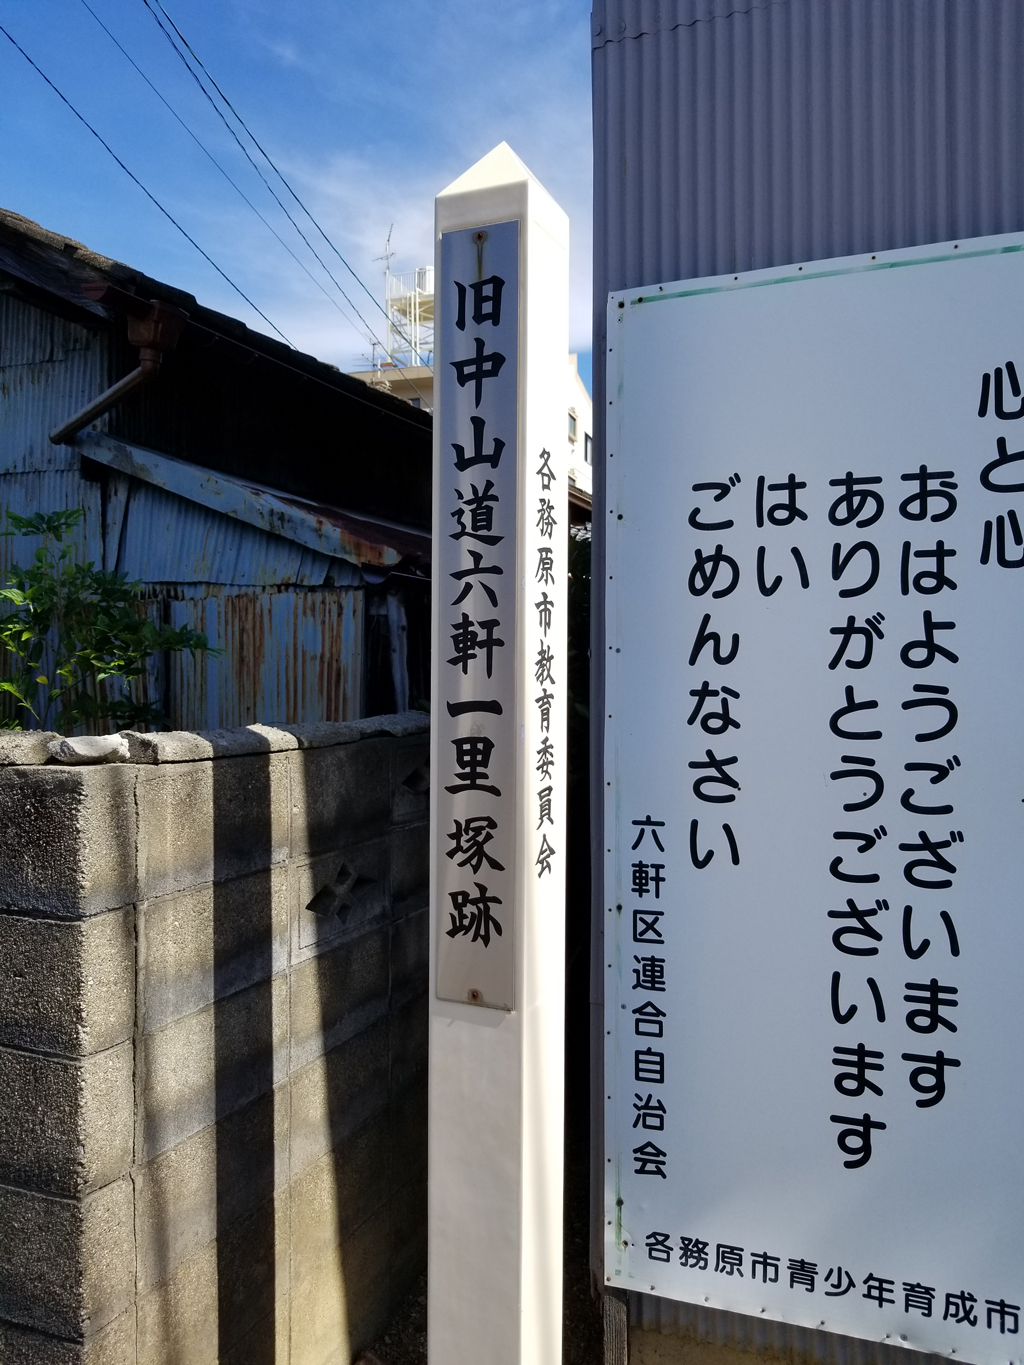 旧中山道六軒一里塚跡
各務原市教育委員会
心と心
おはようございます
ありがとうございます
はい
ごめんなさい
六軒区連合自治会
各務原市青少年育成市